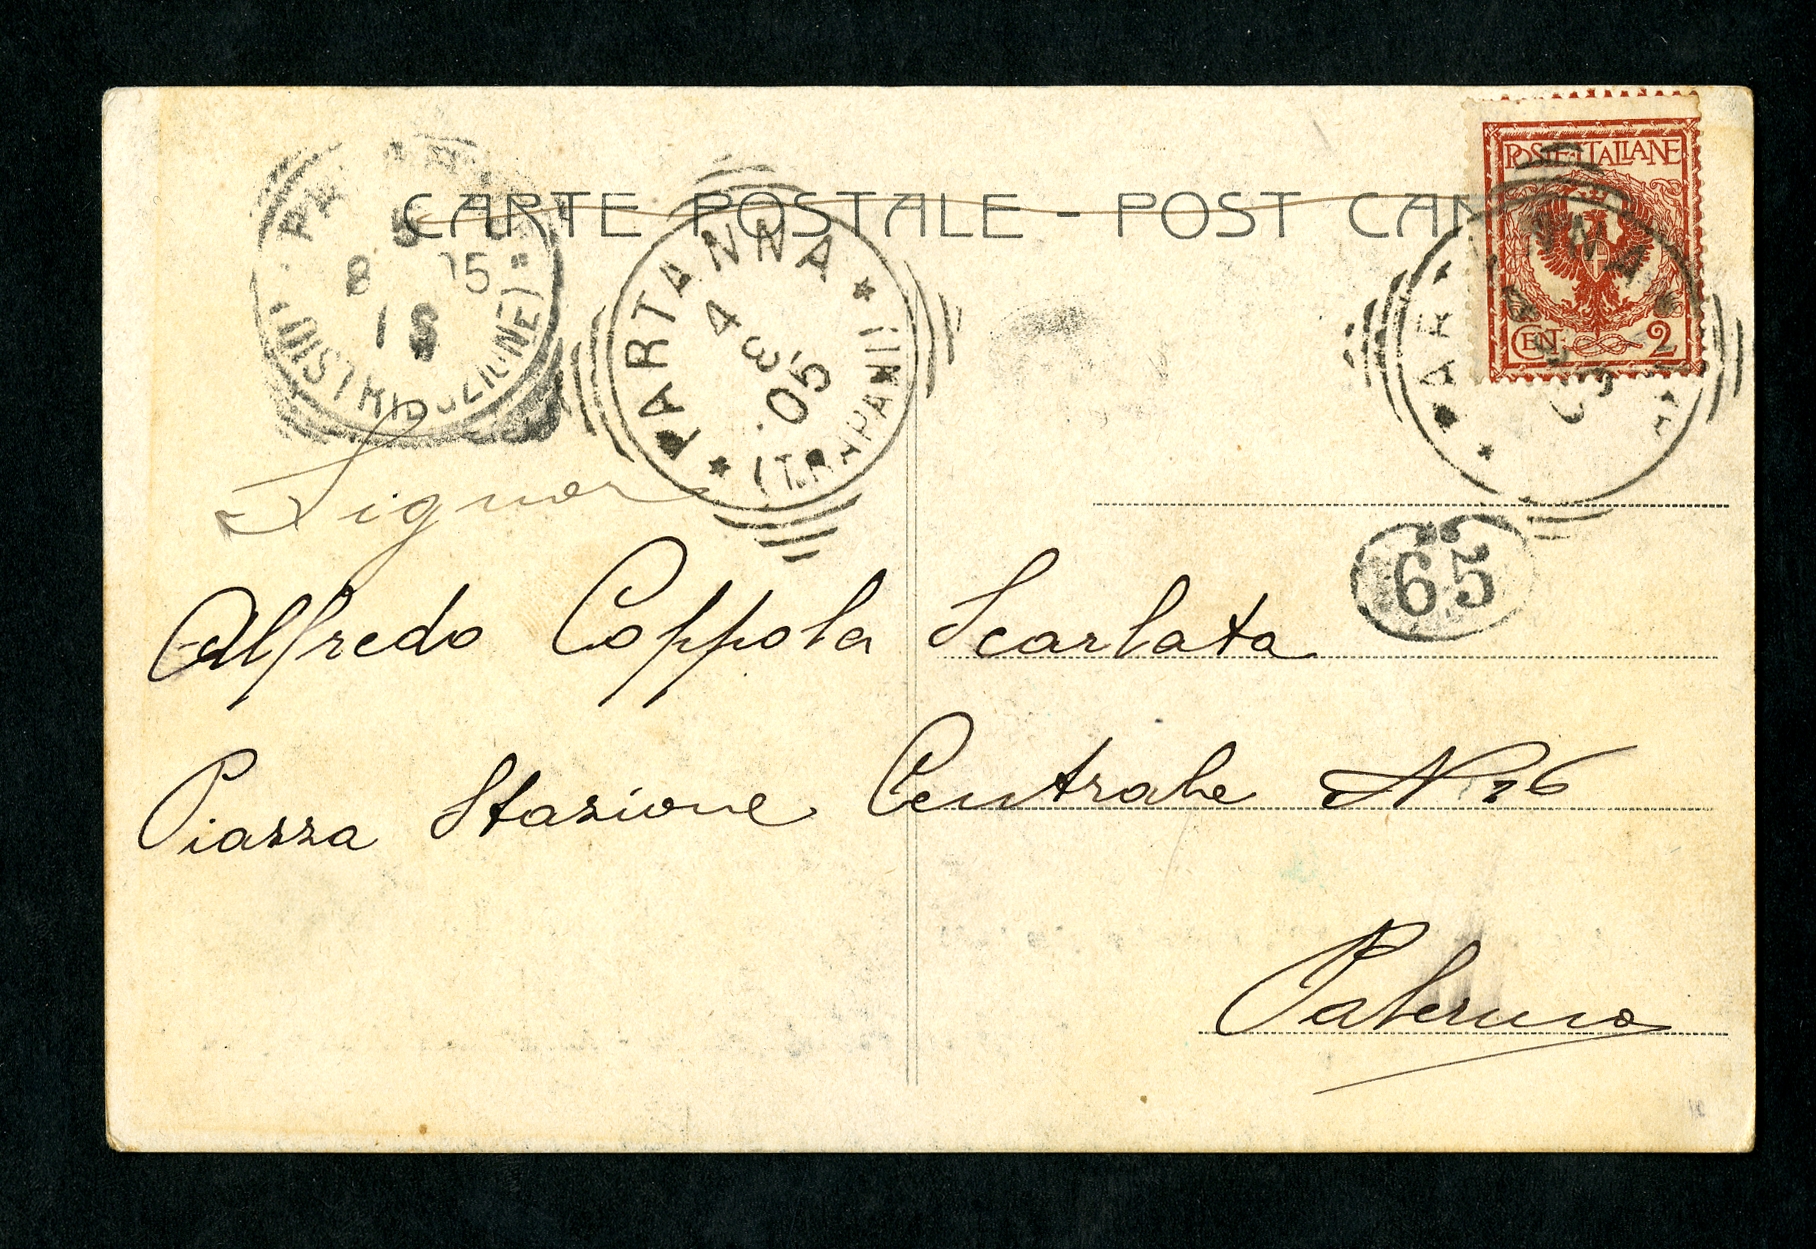 CARTE POSTALE - POST CAR
POSTE ITALIANE
CEN. 2
5
8 05
18
(DISTRIBUZIONE)
PARTANNA
4
3
05
(TRAPANI)
PARTANNA
65
Signor
Alfredo Coppola Scarlata
Piazza Stazione Centrale N 26
Palermo